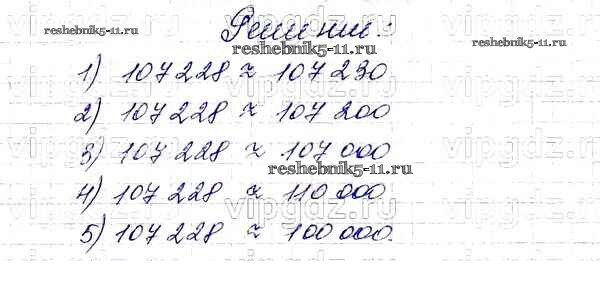 Решение:
reshebnik5-11.ru
reshebnik5-11.ru
1) 107 228 ≈ 107 230
2) 107 228 ≈ 107 200
3) 107 228 ≈ 107 000
reshebnik5-11.ru
4) 107 228 ≈ 110 000
5) 107 228 ≈ 100 000.
vipgdz.ru
vipgdz.ru
vipgdz.ru